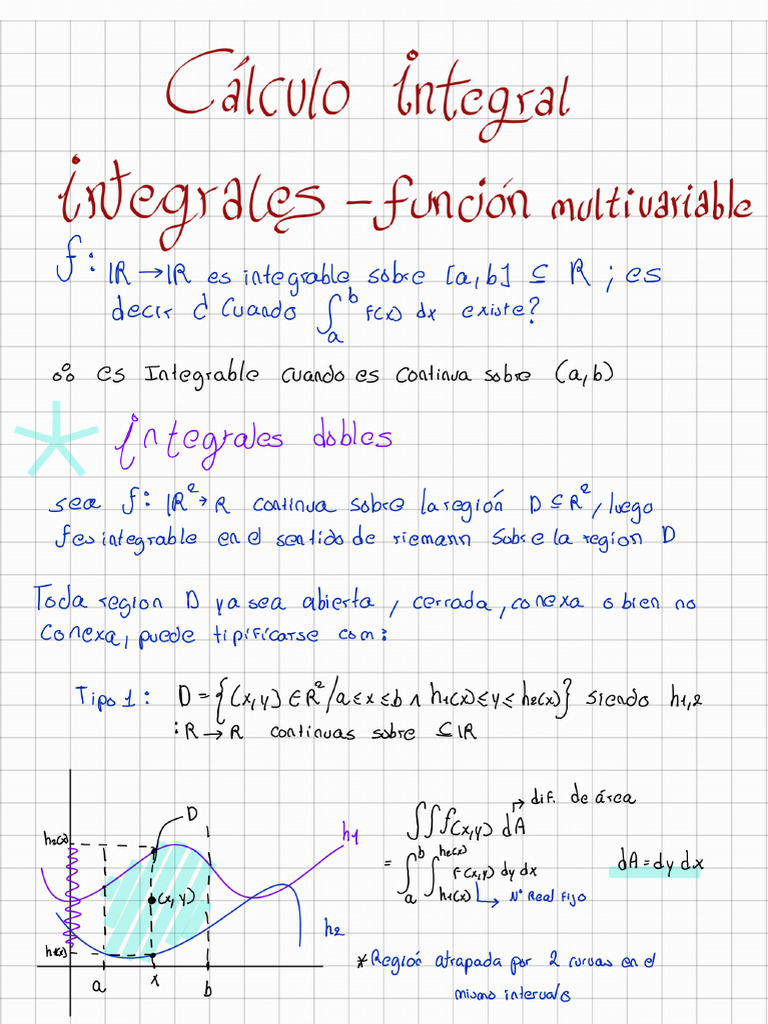 Cálculo integral
integrales - función multivariable
f: IR → IR es integrable sobre [a,b] ⊆ R ; es
decir ¿ Cuando ∫_a^b F(x) dx existe?
∴ es Integrable cuando es continua sobre (a,b)
integrales dobles
sea f: IR² → R continua sobre la región D ⊆ R², luego
f es integrable en el sentido de riemann sobre la region D
Toda region D ya sea abierta, cerrada, conexa o bien no
conexa, puede tipificarse com:
Tipo 1: D = {(x,y) ∈ R² / a ≤ x ≤ b ∧ h1(x) ≤ y ≤ h2(x)} siendo h1,2
: R → R continuas sobre ⊆ IR
D
h2(x)
h1
(x,y)
h2
h1(x)
a x b
dif. de área
∫∫ f(x,y) dA
= ∫_a^b ∫_h1(x)^h2(x) F(x,y) dy dx
dA = dy dx
Nº Real Fijo
* Región atrapada por 2 curvas en el
mismo intervalo